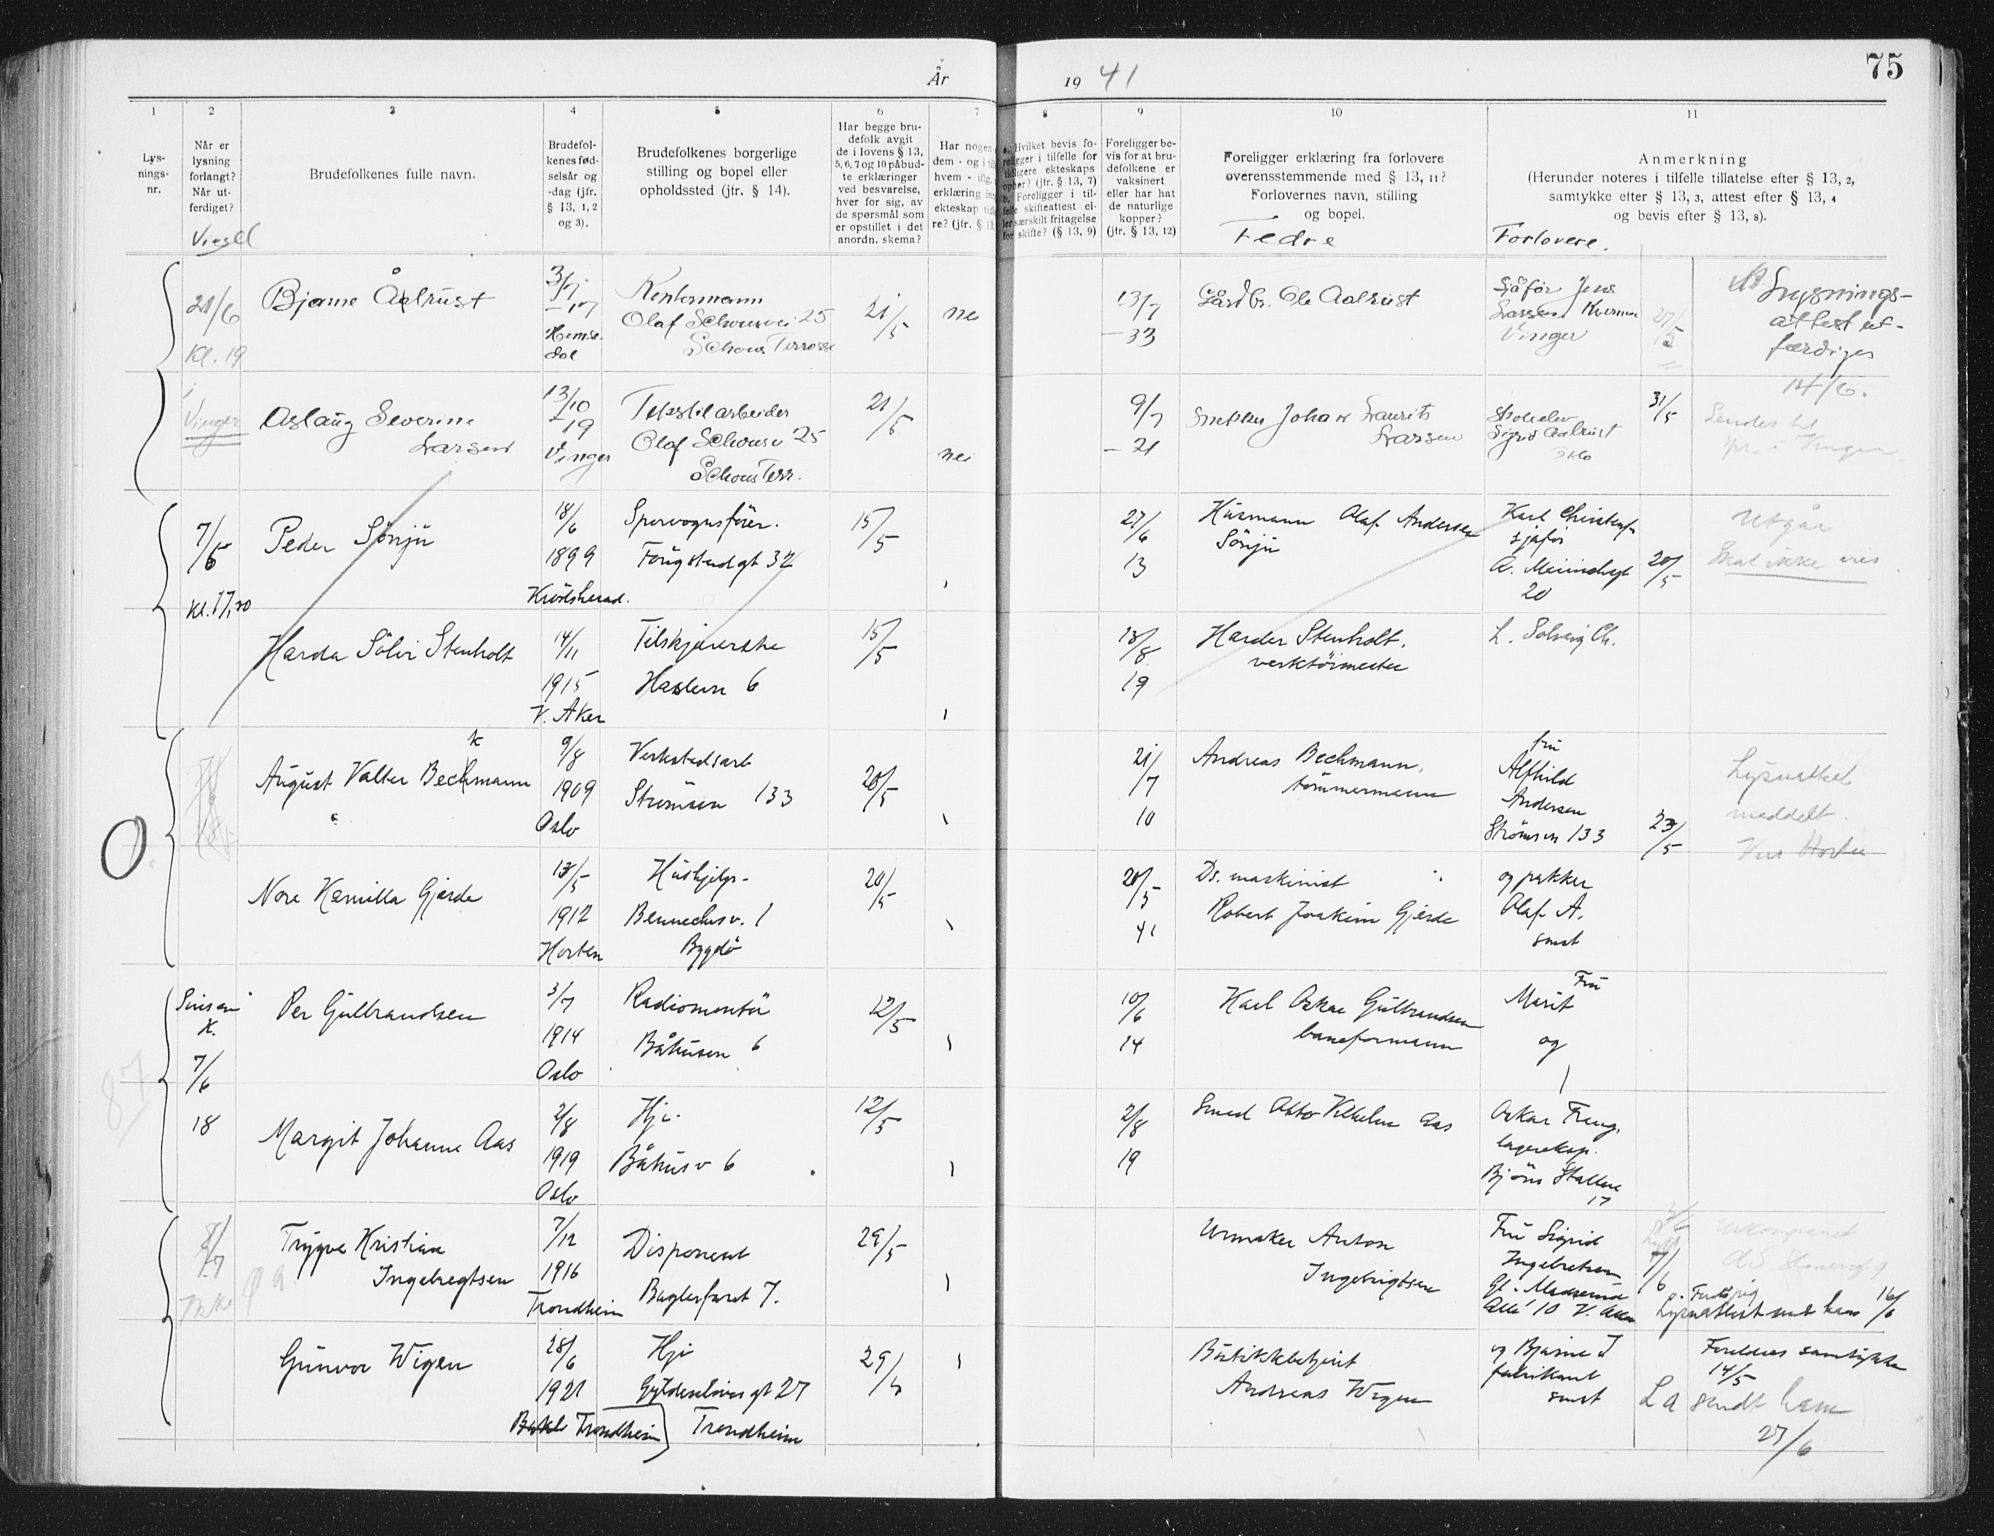 75
År 1941
1 2 3 4 5 6 7 8 9 10 11
Lys-
nings-
nr.
Når er
lysning
forlangt?
Når ut-
ferdiget?
Viegsl
Brudefolkenes fulle navn.
Brudefol-
kenes fød-
selsår og
-dag (jfr.
§ 13, 1, 2
og 3).
Brudefolkenes borgerlige
stilling og bopel eller
opholdssted (jfr. § 14).
Har begge bru-
defolk avgit
de i lovens § 13,
5, 6, 7 og 10 påbud-
te erklæringer
ved besvarelse,
hver for sig, av
de spørsmål som
er opstillet i det
anordn. skema?
Har nogen
dem - og i
hvem - iflg.
erklæring
ekteskap
re? (jfr. §
a. Hvilket bevis fo-
religger i tilfelle for
tidligere ekteskaps
ophør? (jfr. § 13, 7)
b. Foreligger i til-
felle skifteattest el-
ler særskilt fritagelse
for skifte? (§ 13, 9)
Foreligger be-
vis for at bru-
defolkene er
vaksinert
eller har hat
de naturlige
kopper?
(jfr. § 13, 12)
Foreligger erklæring fra forlovere
overensstemmende med § 13, 11?
Forlovernes navn, stilling
og bopel.
Fedre
Anmerkning
(Herunder noteres i tilfelle tillatelse efter § 13, 2,
samtykke efter § 13, 3, attest efter § 13, 4
og bevis efter § 13, 8).
Forlovere.
21/6
Kl. 19
Bjarne Åalrust
3/7
-17
Hemse-
dal
Kontormann
Olaf Schousvei 25
Schous Terrasse
21/5
nei
13/7
-33
Gårdbr. Ole Aalrust
Sjåfør Jens
Larsen
Vinger
27/5
Lysnings-
attest ut-
færdiges
14/6.
i
Vinger
Aslaug Severine
Larsen
13/10
-19
Vinger
Tekstilarbeider
Olaf Schousv 25
Schous Terr.
21/5
nei
9/7
-21
Snekker Johan Laurits
Larsen
Sigrid Aalrust
Oslo
31/5
Sendes til
spr. i Vinger.
7/6
Kl. 17,30
Peder Sönju
18/6
1899
Krödsherad.
Sporvognsfører.
Fougstadgt 32
15/5
27/6
13
Husmann Olaf Andersen
Sönju
Karl Christens.
sjåfør
20
20/5
Utgår
Skal ikke vies
Harda Sölvi Stenholt
14/11
1915
V. Aker
Tilskjærerske
Haslevn 6
15/5
13/8
19
Harder Stenholt,
verktöimester
L. Solveig Ch.
August Valter Bechmann
k
9/8
1909
Oslo
Verkstedsarb
Strömsvn 133
20/5
21/7
10
Andreas Bechmann,
tömmermann
fru
Alfhild
Andersen
Strömsvn 133
23/5
Lysnattest
meddelt.
Nore Kamilla Gjerde
13/5
1912
Horten
Hushjelp-
Bennechesv. 1
Bygdö
20/5
20/5
41
Ds. maskinist
Robert Joakim Gjerde
og pakker
Olaf A.
smst
Sinsen
K.
7/6
18
87
Per Gulbrandsen
3/7
1914
Oslo
Radiomontör
Båhusvn 6
12/5
10/6
14
Karl Oskar Gulbrandsen
baneformann
Fru
Marit
og
Margit Johanne Aas
2/8
1919
Oslo
Hj.
Båhusv 6
12/5
2/8
19
Smed Otto Vilhelm Aas
Oskar Freng.
lagereksp.
Bjöns
17
Ikke
Trygve Kristian
Ingebregtsen
7/12
1916
Trondheim
Disponent
Baglerfaret 7.
29/5
Urmaker Anton
Ingebrigtsen
Fru Sigrid
Ingebretsen
Gl. Madserud
Allé 10 V. Aker
7/6
Lysnattest sendt ham 16/6
Gunvor Wigen
28/6
1921
Trondheim
Hj.
Gyldenlöves gt 27
Trondheim
29/5
Butikkbetjent
Andreas Wigen
og Bjarne I
fabrikant
smst
Foreldres samtykke
14/5
La sendt ham
27/6